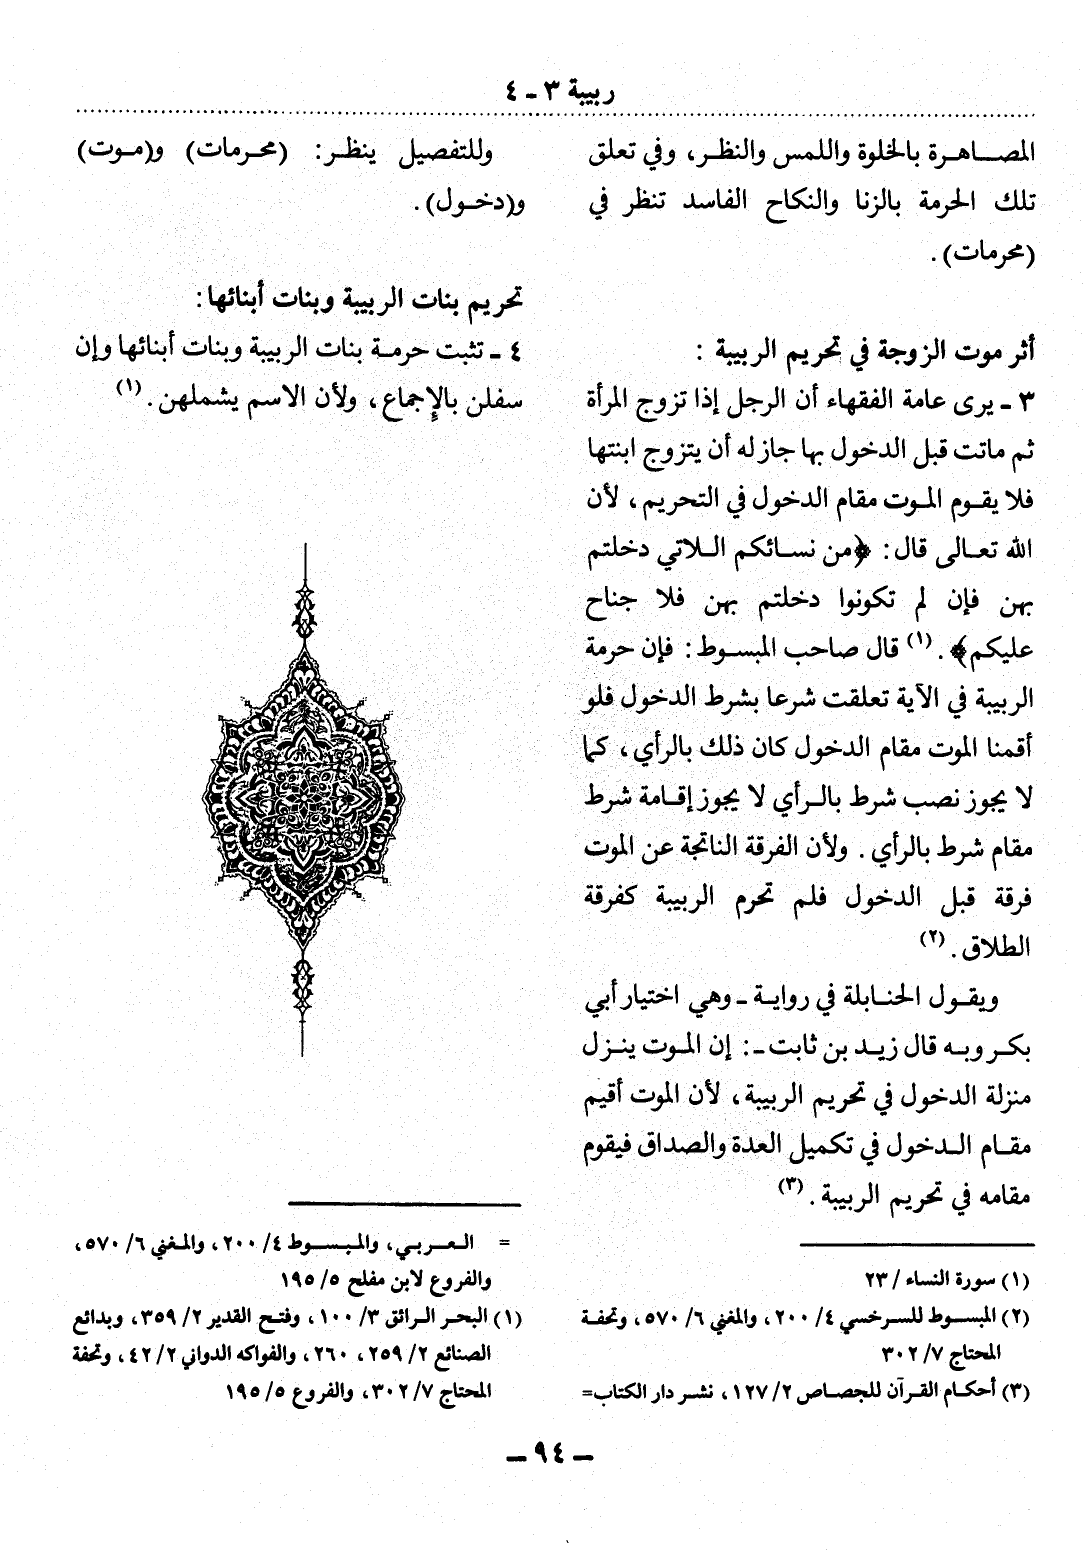 ربيبة ٣ ـ ٤
المصـاهرة بالخلوة واللمس والنظر، وفي تعلق
تلك الحرمة بالزنا والنكاح الفاسد تنظر في
(محرمات).
أثر موت الزوجة في تحريم الربيبة :
٣ ـ يرى عامة الفقهاء أن الرجل إذا تزوج المرأة
ثم ماتت قبل الدخول بها جاز له أن يتزوج ابنتها
فلا يقوم الموت مقام الدخول في التحريم، لأن
الله تعالى قال: ﴿من نسائكم اللاتي دخلتم
بهن فإن لم تكونوا دخلتم بهن فلا جناح
عليكم﴾. (١) قال صاحب المبسوط: فإن حرمة
الربيبة في الآية تعلقت شرعا بشرط الدخول فلو
أقمنا الموت مقام الدخول كان ذلك بالرأي، كما
لا يجوز نصب شرط بالرأي لا يجوز إقامة شرط
مقام شرط بالرأي. ولأن الفرقة الناتجة عن الموت
فرقة قبل الدخول فلم تحرم الربيبة كفرقة
الطلاق. (٢)
ويقول الحنابلة في رواية ـ وهي اختيار أبي
بكر وبه قال زيد بن ثابت ـ: إن الموت ينزل
منزلة الدخول في تحريم الربيبة، لأن الموت أقيم
مقام الدخول في تكميل العدة والصداق فيقوم
مقامه في تحريم الربيبة. (٣)
(١) سورة النساء / ٢٣
(٢) المبسوط للسرخسي ٤/ ٢٠٠، والمغني ٦/ ٥٧٠، وتحفة
المحتاج ٧/ ٣٠٢
(٣) أحكام القرآن للجصاص ٢/ ١٢٧، نشر دار الكتاب=
وللتفصيل ينظر: (محرمات) و(موت)
و(دخول).
تحريم بنات الربيبة وبنات أبنائها:
٤ ـ تثبت حرمة بنات الربيبة وبنات أبنائها وإن
سفلن بالإجماع، ولأن الاسم يشملهن. (١)
= العربي، والمبسوط ٤/ ٢٠٠، والمغني ٦/ ٥٧٠،
والفروع لابن مفلح ٥/ ١٩٥
(١) البحر الرائق ٣/ ١٠٠، وفتح القدير ٢/ ٣٥٩، وبدائع
الصنائع ٢/ ٢٥٩، ٢٦٠، والفواكه الدواني ٢/ ٤٢، وتحفة
المحتاج ٧/ ٣٠٢، والفروع ٥/ ١٩٥
ـ ٩٤ ـ